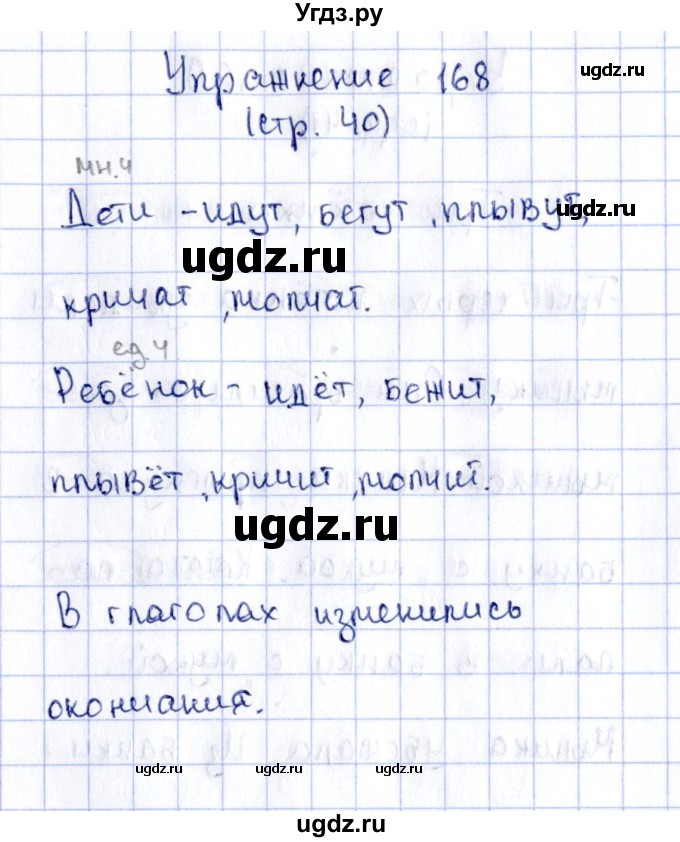 Угдз.ру
Упражнение 168
ugdz.ru
(стр. 40)
мн.ч
Дети - идут, бегут, плывут,
ugdz.ru
ugdz.ru
кричат, молчат.
ед.ч
Ребёнок - идёт, бежит,
плывёт, кричит, молчит.
ugdz.ru
В глаголах изменились
окончания.
ugdz.ru
ugdz.ru
ugdz.ru
ugdz.ru